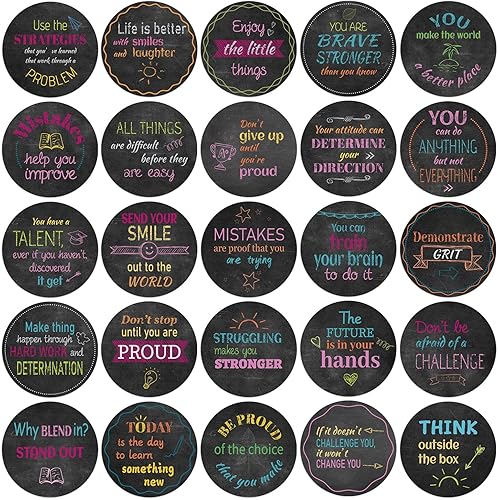 Use the
STRATEGIES
that you've learned
that work through a
PROBLEM
Life is better
with smiles
and laughter
Enjoy
the little
things
YOU ARE
BRAVE
STRONGER
than you know
YOU
make the world
a better place
Mistakes
help you
improve
ALL THINGS
are difficult
before they
are easy
Don't
give up
until
you're
proud
Your attitude can
DETERMINE
your
DIRECTION
YOU
can do
ANYTHING
but not
EVERYTHING
You have a
TALENT,
even if you haven't
discovered
it yet
SEND YOUR
SMILE
out to the
WORLD
MISTAKES
are proof that you
are trying
You can
train
your brain
to do it
Demonstrate
GRIT
Make thing
happen through
HARD WORK and
DETERMINATION
Don't stop
until you are
PROUD
STRUGGLING
makes you
STRONGER
The
FUTURE
is in your
hands
Don't be
afraid of a
CHALLENGE
Why BLEND in?
STAND OUT
TODAY
is the day
to learn
something
new
BE PROUD
of the choice
that you make
If it doesn't
CHALLENGE YOU,
it won't
CHANGE YOU
THINK
outside
the box